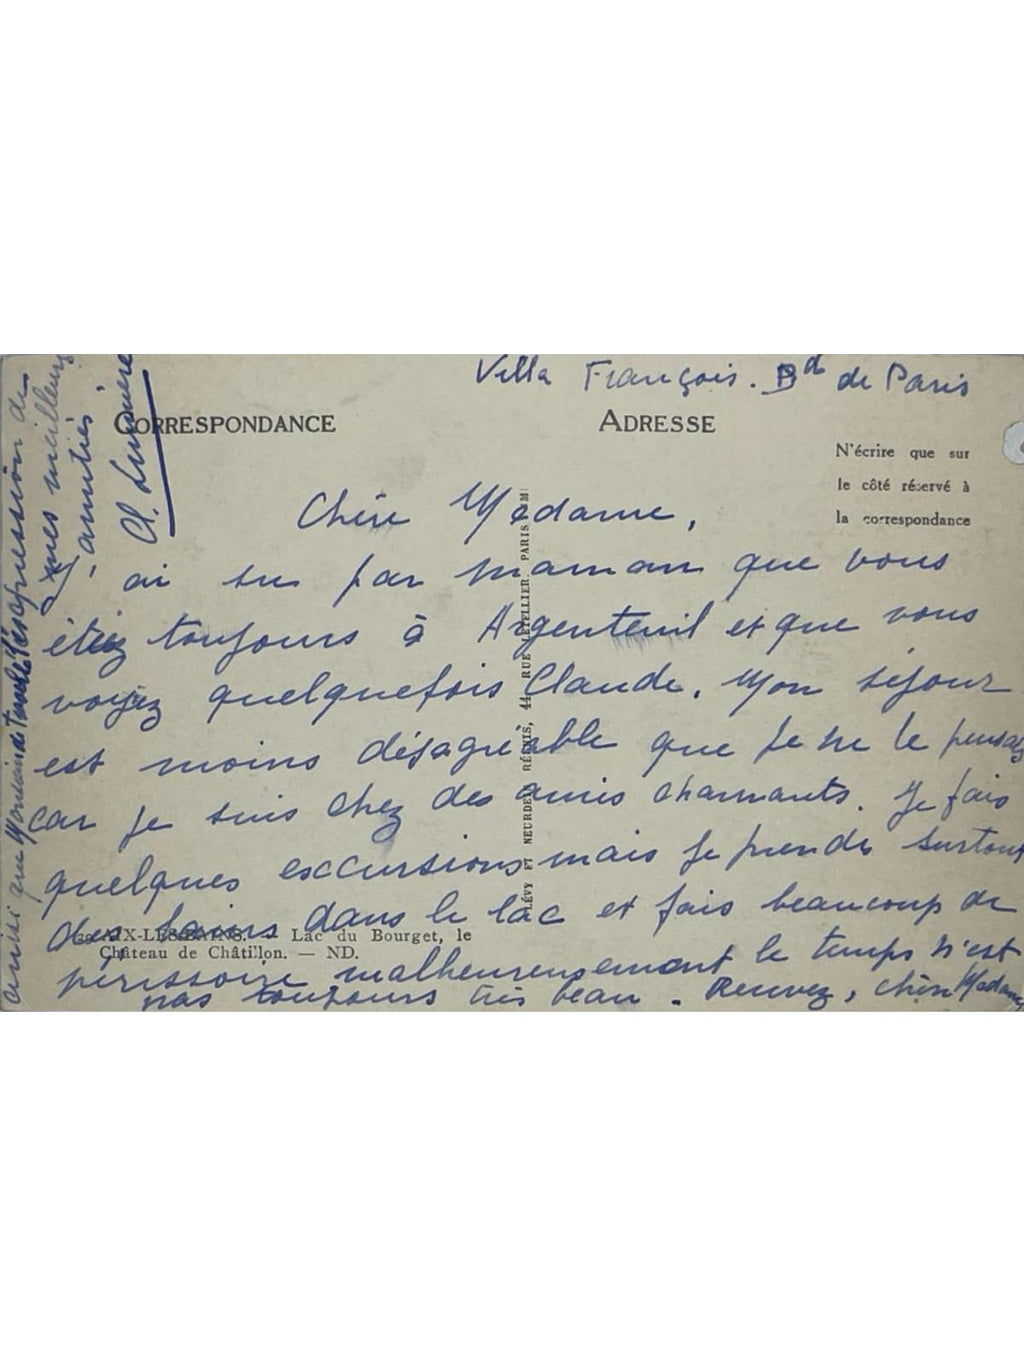 Villa François. Bd de Paris
CORRESPONDANCE
ADRESSE
N'écrire que sur
le côté réservé à
la correspondance
Chère Madame,
J'ai su par maman que vous
étiez toujours à Argenteuil et que vous
voyez quelquefois Claude. Mon séjour
est moins désagréable que je ne le pensais
car je suis chez des amis charmants. Je fais
quelques excursions mais je prends surtout
des bains dans le lac et fais beaucoup de
périssoire malheureusement le temps n'est
pas toujours très beau. Recevez, chère Madame
ainsi que Monsieur l'expression de
mes meilleures
amitiés
Cl.
LÉVY ET NEURDEIN RÉUNIS, 44, RUE LETELLIER. PARIS
AIX-LES-BAINS. — Lac du Bourget, le
Château de Châtillon. — ND.